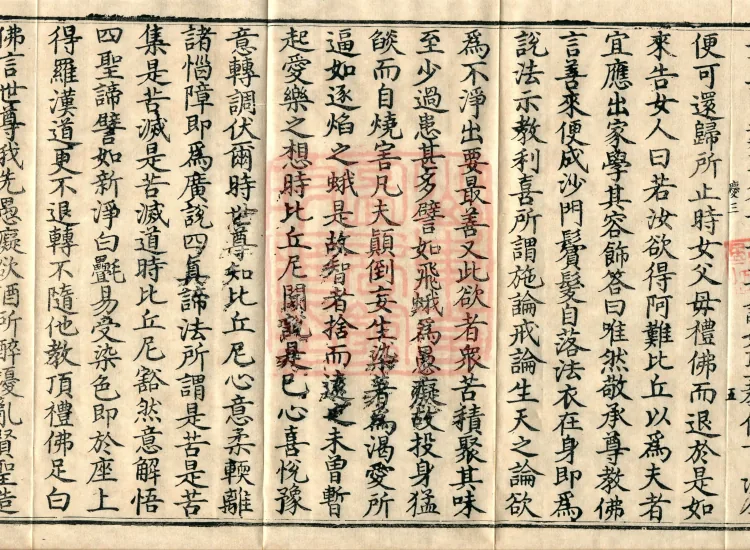 慶三
五
便可還歸所止時女父母禮佛而退於是如
來告女人曰若汝欲得阿難比丘以爲夫者
宜應出家學其容飾答曰唯然敬承尊教佛
言善來便成沙門鬚髮自落法衣在身即爲
說法示教利喜所謂施論戒論生天之論欲
爲不淨出要最善又此欲者衆苦積聚其味
至少過患甚多譬如飛蛾爲愚癡故投身猛
燄而自燒害凡夫顛倒妄生染著爲渴愛所
逼如逐焰之蛾是故智者捨而遠之未曾暫
起愛樂之想時比丘尼聞說是已心喜悅豫
意轉調伏爾時世尊知比丘尼心意柔輭離
諸惱障即爲廣說四真諦法所謂是苦是苦
集是苦滅是苦滅道時比丘尼豁然意解悟
四聖諦譬如新淨白㲲易受染色即於座上
得羅漢道更不退轉不隨他教頂禮佛足白
佛言世尊我先愚癡欲酒所醉擾亂賢聖造